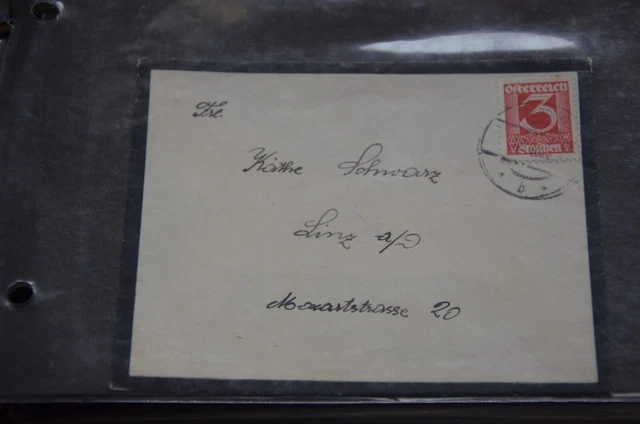 Österreich
3
Groschen
b
Frl.
Käthe Schwarz
Linz a/D
Mozartstrasse 20